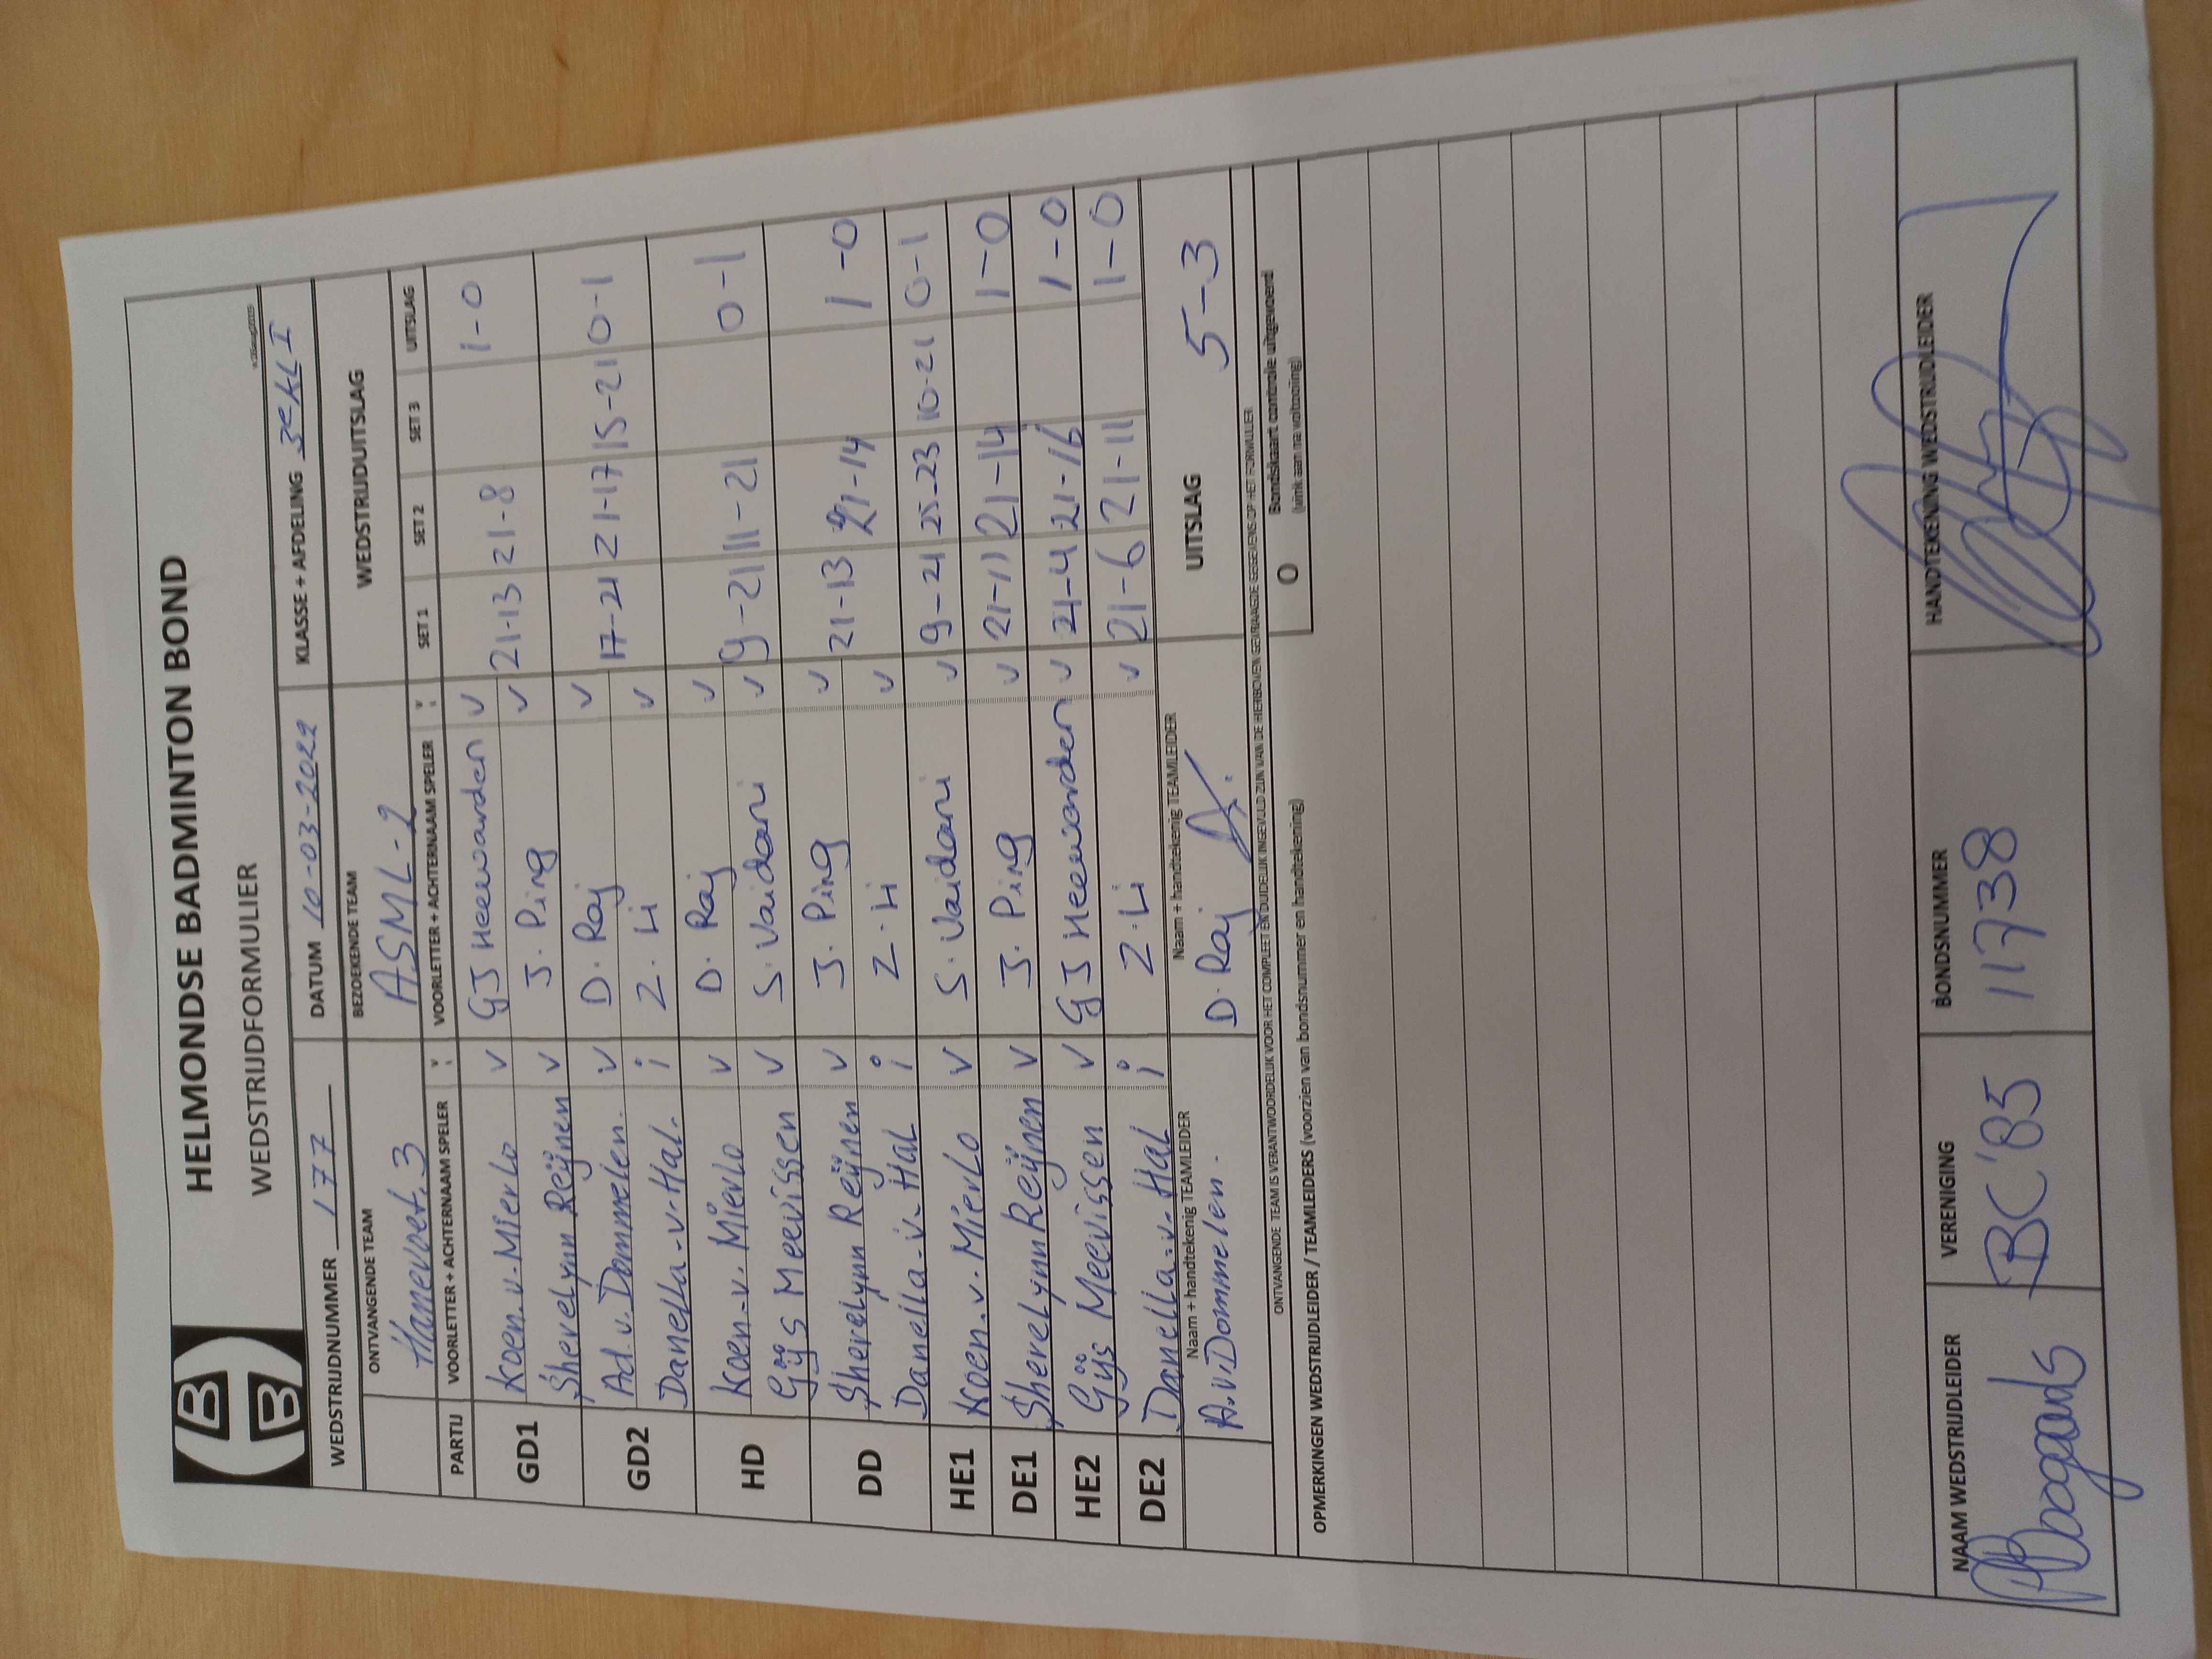 HELMONDSE BADMINTON BOND
WEDSTRIJDFORMULIER
WEDSTRIJDNUMMER 177 DATUM 10-03-2022 KLASSE + AFDELING 3e KL I
ONTVANGENDE TEAM BEZOEKENDE TEAM WEDSTRIJDUITSLAG
Hanevoet.3 ASML-2
PARTIJ VOORLETTER + ACHTERNAAM SPELER VOORLETTER + ACHTERNAAM SPELER SET 1 SET 2 SET 3 UITSLAG
GD1 Koen.v.Mierlo v GJ Heewaarden v 21-13 21-8 1-0
Sherelynn Reijnen v J. Ping v
GD2 Ad.v.Dommelen. v D. Raj v 17-21 21-17 15-21 0-1
Danella-v-Hal. i Z. Li v
HD Koen-v. Mierlo v D. Raj v 9-21 11-21 0-1
Gijs Meevissen v S. Vaidani v
DD Sherelynn Reijnen v J. Ping v 21-13 21-14 1-0
Daneila-v-Hal i Z. Li v
HE1 Koen.v.Mierlo v S. Vaidani v 9-21 25-23 10-21 0-1
DE1 Sherelynn Reijnen v J. Ping v 21-11 21-14 1-0
HE2 Gijs Meevissen v GJ Heewarden v 21-4 21-16 1-0
DE2 Danella.v.Hal i Z. Li v 21-6 21-11 1-0
Naam + handtekenig TEAMLEIDER Naam + handtekenig TEAMLEIDER UITSLAG 5-3
A.v.Dommelen. D. Raj
ONTVANGENDE TEAM IS VERANTWOORDELIJK VOOR HET COMPLEET EN DUIDELIJK INGEVULD ZIJN VAN DE HIERBOVEN GEVRAAGDE GEGEVENS OP HET FORMULIER
OPMERKINGEN WEDSTRIJDLEIDER / TEAMLEIDERS (voorzien van bondsnummer en handtekening) O Bondskaart controle uitgevoerd
(vink aan na voltooiing)
NAAM WEDSTRIJDLEIDER VERENIGING BONDSNUMMER HANDTEKENING WEDSTRIJDLEIDER
Bogaards BC'85 11738